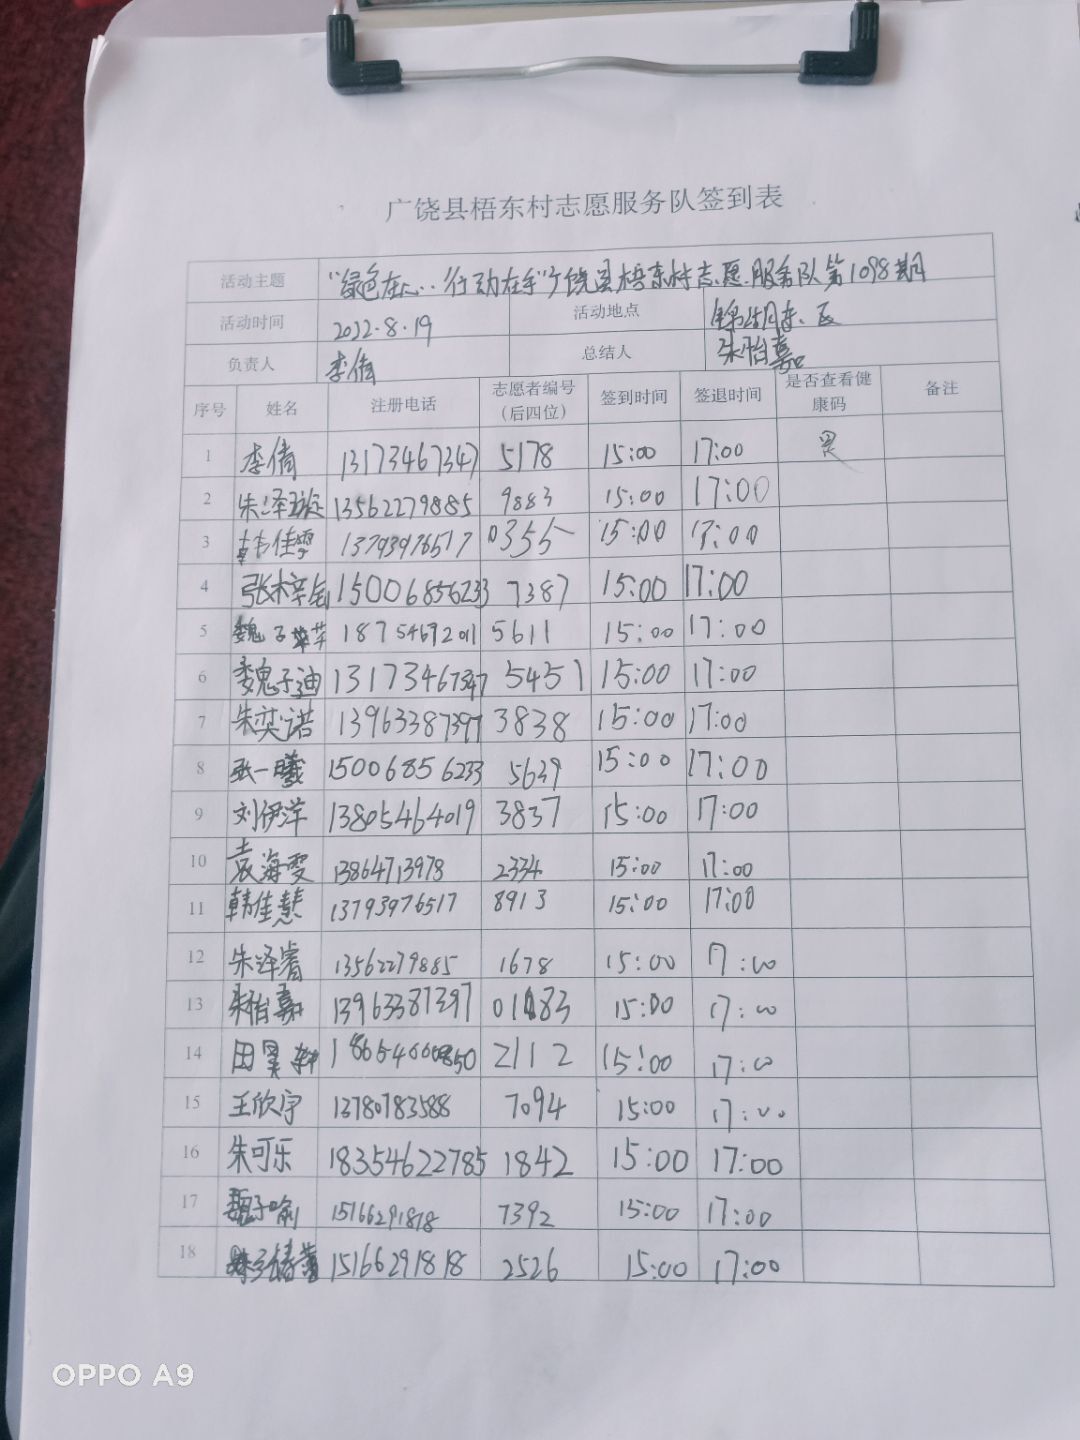 广饶县梧东村志愿服务队签到表
活动主题 "绿色在心..行动在手"广饶县梧东村志愿服务队第1098期
活动时间 2022.8.19 活动地点 锦湖东区
负责人 李倩 总结人 朱怡嘉
序号 姓名 注册电话 志愿者编号（后四位） 签到时间 签退时间 是否查看健康码 备注
1 李倩 13173467347 5178 15:00 17:00 是
2 朱泽璇 13562279885 9883 15:00 17:00
3 韩佳雪 13793976517 0355 15:00 17:00
4 张梓 15006856233 7387 15:00 17:00
5 魏子 18754672011 5611 15:00 17:00
6 魏子迪 13173467347 5451 15:00 17:00
7 朱奕诺 13963387397 3838 15:00 17:00
8 张一曦 15006856233 5639 15:00 17:00
9 刘伊洋 13805464019 3837 15:00 17:00
10 袁海雯 13864713978 2334 15:00 17:00
11 韩佳慧 13793976517 8913 15:00 17:00
12 朱泽睿 13562279885 1678 15:00 17:00
13 朱怡嘉 13963387397 0183 15:00 17:00
14 田昊 2112 15:00 17:00
15 王欣宇 13780783588 7094 15:00 17:00
16 朱可乐 18354622785 1842 15:00 17:00
17 魏子喻 15166291818 7392 15:00 17:00
18 15166291818 2526 15:00 17:00
OPPO A9